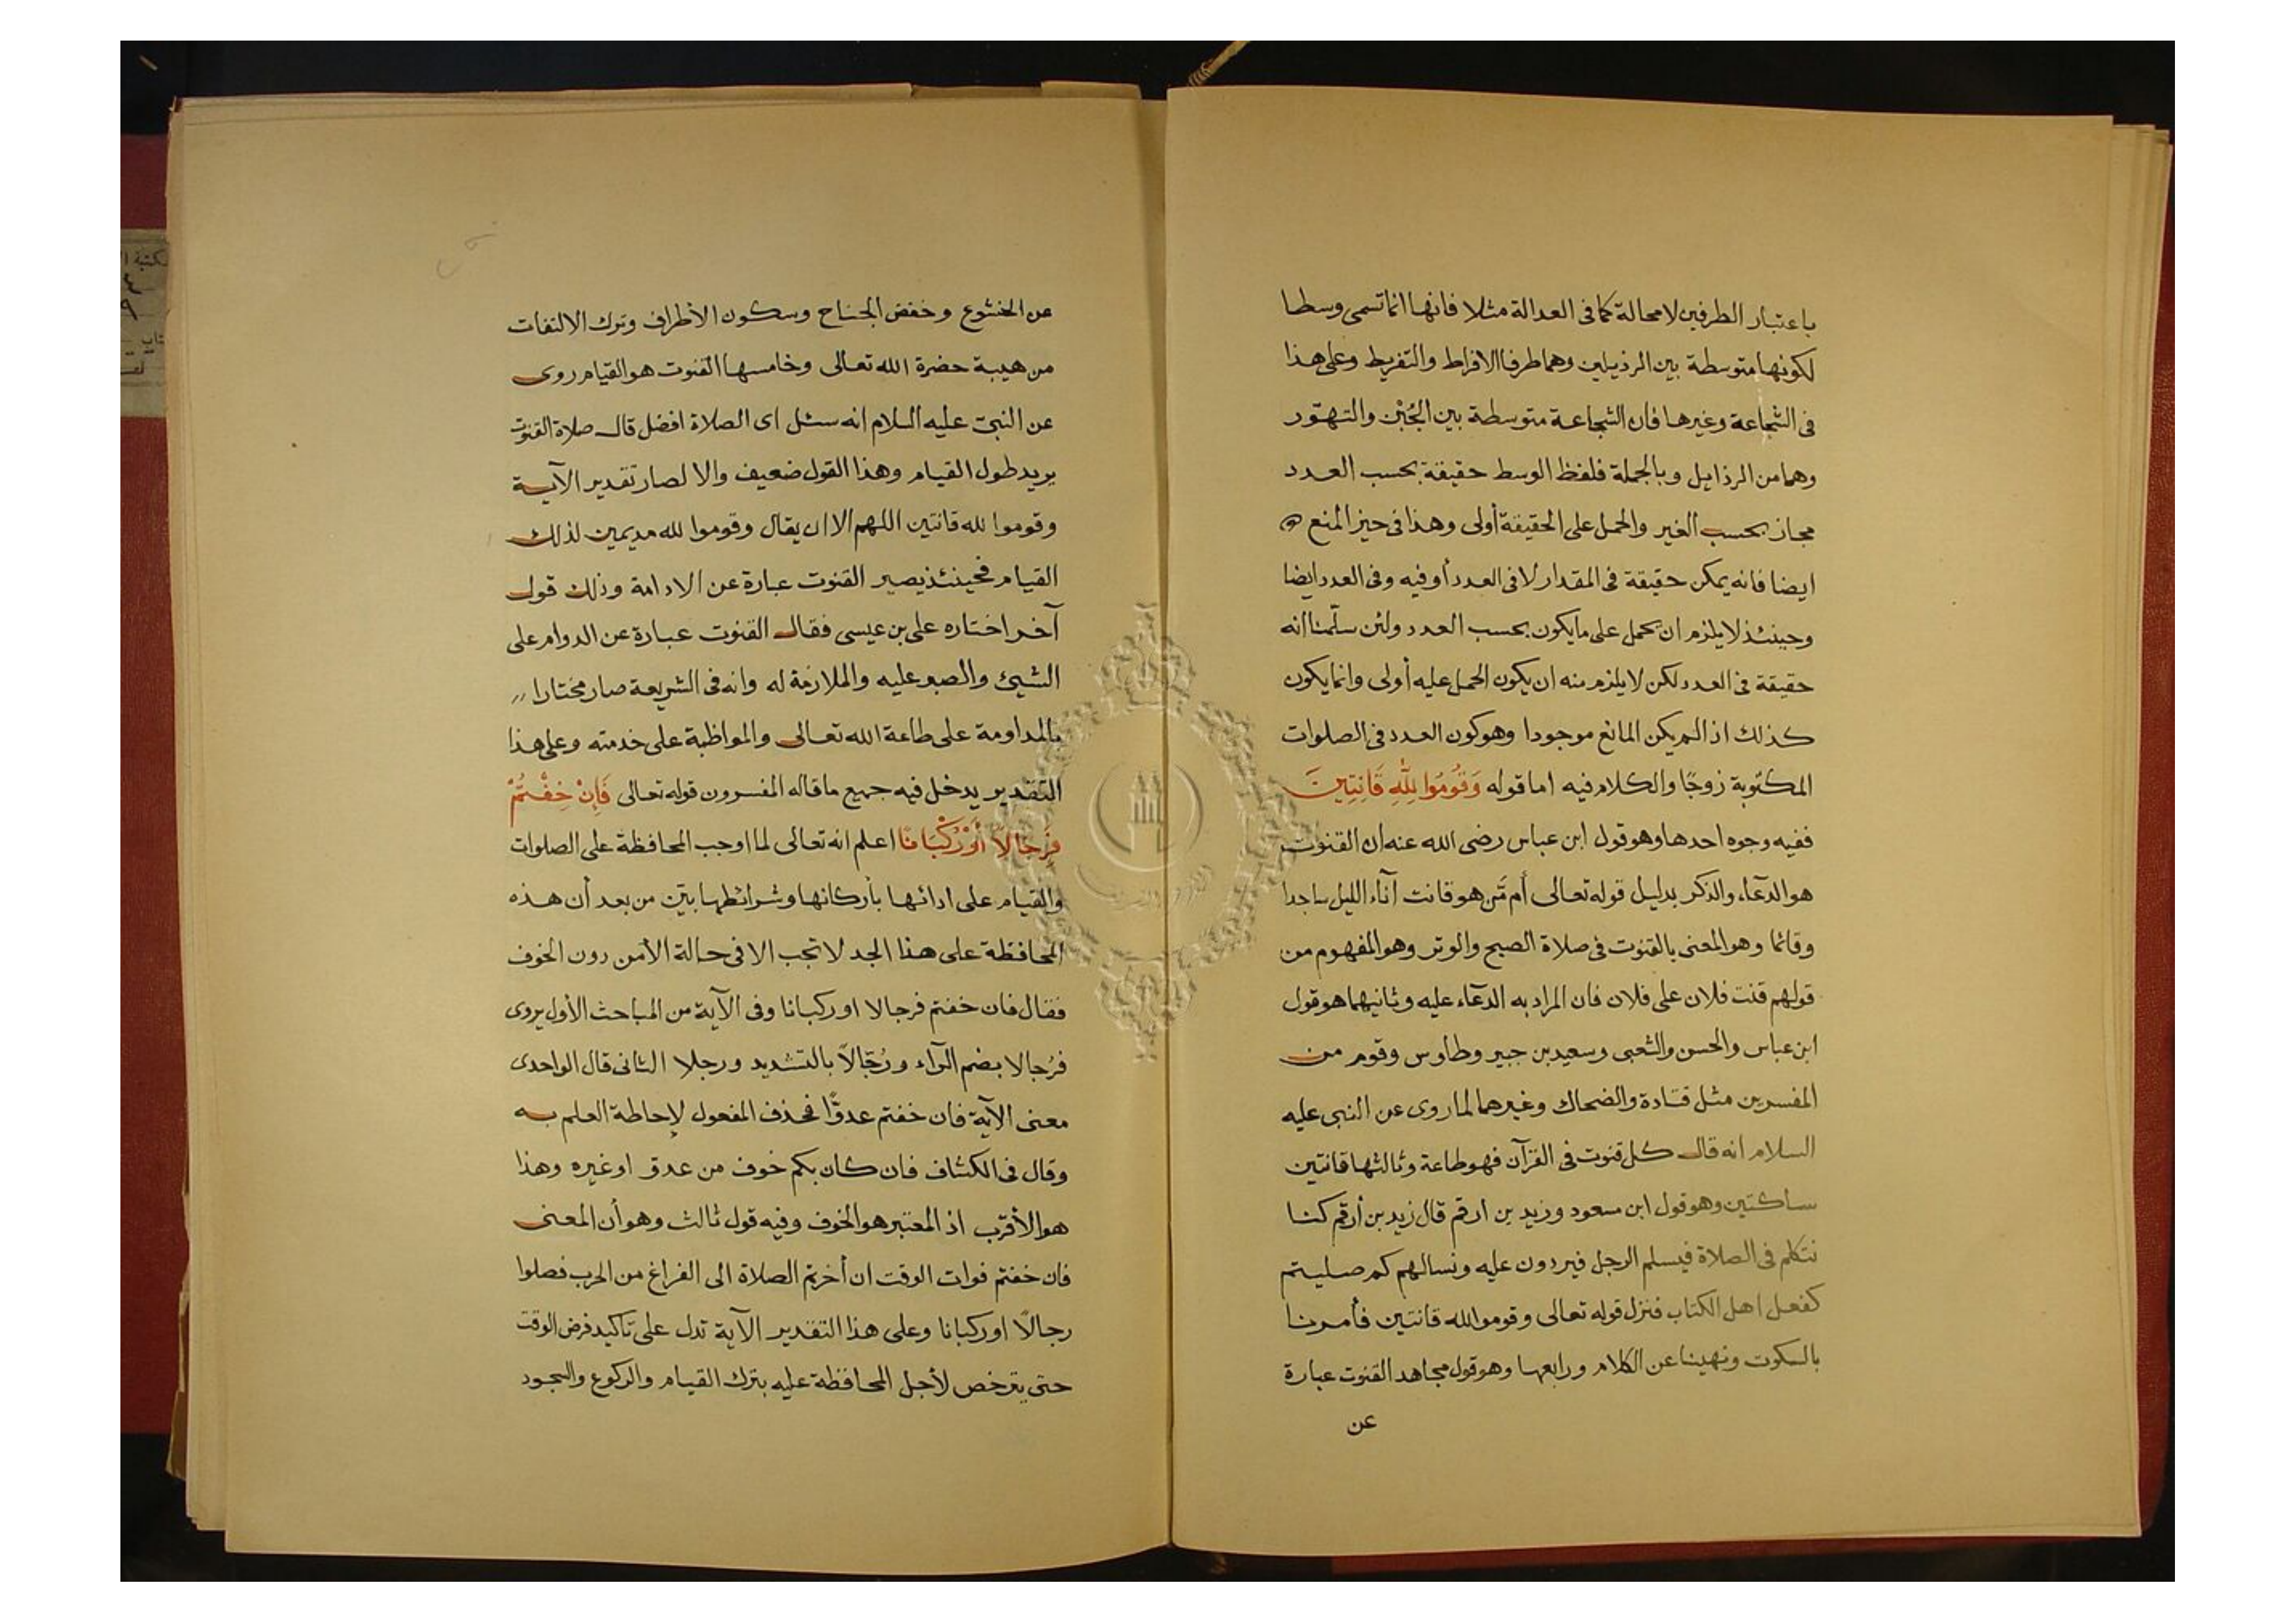 باعتبار الطرفين لامحالة كما فى العدالة مثلا فانها انما تسمى وسطا
لكونها متوسطة بين الرذيلين وهما طرفا الافراط والتفريط وعلى هذا
فى الشجاعة وغيرها فان الشجاعة متوسطة بين الجُبْن والتهوّر
وهما من الرذايل وبالجملة فلفظ الوسط حقيقة بحسب العدد
مجاز بحسب الغير والحمل على الحقيقة أولى وهذا فى حيز المنع
ايضا فانه يمكن حقيقة فى المقدار لا فى العدد أو فيه وفى العدد ايضا
وحينئذ لا يلزم ان يحمل على ما يكون بحسب العدد ولئن سلّمنا انه
حقيقة فى العدد لكن لا يلزم منه ان يكون الحمل عليه أولى وانما يكون
كذلك اذا لم يكن المانع موجودا وهو كون العدد فى الصلوات
المكتوبة زوجًا والكلام فيه اما قوله وَقُومُوا لِلّٰهِ قَانِتِينَ
ففيه وجوه احدها وهو قول ابن عباس رضى الله عنه ان القنوت
هو الدعاء والذكر بدليل قوله تعالى أم مّن هو قانت آناء الليل ساجدا
وقائما وهو المعنى بالقنوت فى صلاة الصبح والوتر وهو المفهوم من
قولهم قنت فلان على فلان فان المراد به الدعاء عليه وثانيهما هو قول
ابن عباس والحسن والشعبى وسعيد بن جبير وطاوس وقوم من
المفسرين مثل قتادة والضحاك وغيرهما لما روى عن النبى عليه
السلام انه قال كل قنوت فى القرآن فهو طاعة وثالثها قانتين
ساكتين وهو قول ابن مسعود وزيد بن ارقم قال زيد بن أرقم كنا
نتكلم فى الصلاة فيسلم الرجل فيردون عليه ونسالهم كم صليتم
كفعل اهل الكتاب فنزل قوله تعالى وقوموا لله قانتين فأمرنا
بالسكوت ونهينا عن الكلام ورابعها وهو قول مجاهد القنوت عبارة
عن
عن الخشوع وخفض الجناح وسكون الأطراف وترك الالتفات
من هيبة حضرة الله تعالى وخامسها القنوت هو القيام روى
عن النبىّ عليه السلام انه سئل اى الصلاة افضل قال صلاة القنوت
يريد طول القيام وهذا القول ضعيف والا لصار تقدير الآية
وقوموا لله قانتين اللهم الا ان يقال وقوموا لله مديمين لذلك
القيام فحينئذ يصير القنوت عبارة عن الادامة وذلك قول
آخر اختاره على بن عيسى فقال القنوت عبارة عن الدوام على
الشيئ والصبر عليه والملازمة له وانه فى الشريعة صار مختارا
بالمداومة على طاعة الله تعالى والمواظبة على خدمته وعلى هذا
التقدير يدخل فيه جميع ما قاله المفسرون قوله تعالى فَإِنْ خِفْتُمْ
فَرِجَالًا أَوْ رُكْبَانًا اعلم انه تعالى لما اوجب المحافظة على الصلوات
والقيام على ادائها بأركانها وشرائطها بيّن من بعد أن هذه
المحافظة على هذا الحد لا تجب الا فى حالة الأمن دون الخوف
فقال فان خفتم فرجالا او ركبانا وفى الآية من المباحث الأول يروى
فرُجالا بضم الرآء ورُجّالاً بالتشديد ورجلا الثانى قال الواحدى
معنى الآية فان خفتم عدوًّا فحذف المفعول لإحاطة العلم به
وقال فى الكشاف فان كان بكم خوف من عدوّ او غيره وهذا
هو الأقرب اذ المعتبر هو الخوف وفيه قول ثالث وهو أن المعنى
فان خفتم فوات الوقت ان أخرتم الصلاة الى الفراغ من الحرب فصلوا
رجالًا او ركبانا وعلى هذا التقدير الآية تدل على تأكيد فرض الوقت
حتى يترخص لأجل المحافظة عليه بترك القيام والركوع والسجود